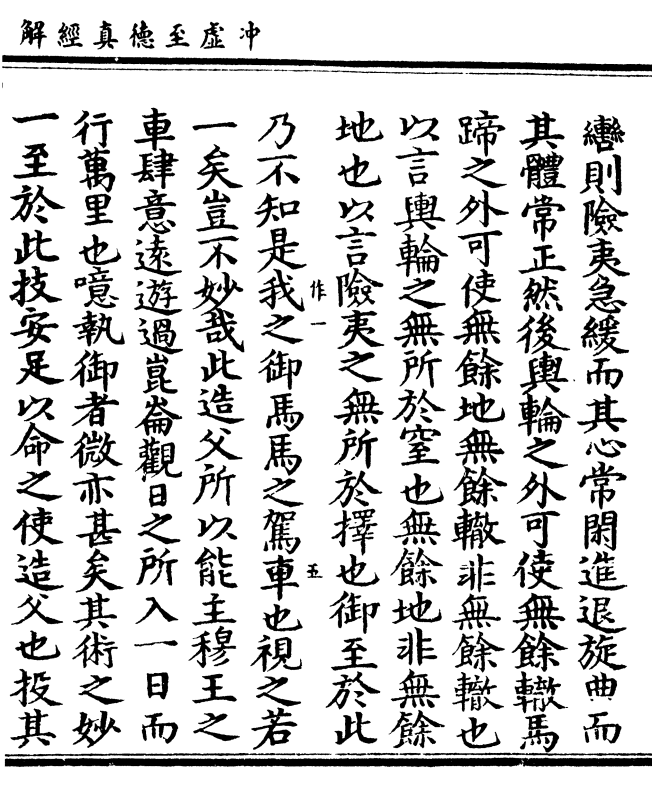 冲虛至德真經解
轡則險夷急緩而其心常閑進退旋曲而
其體常正然後輿輪之外可使無餘轍馬
蹄之外可使無餘地無餘轍非無餘轍也
以言輿輪之無所於窒也無餘地非無餘
地也以言險夷之無所於擇也御至於此
作一 五
乃不知是我之御馬馬之駕車也視之若
一矣豈不妙哉此造父所以能主穆王之
車肆意遠遊過崑崙觀日之所入一日而
行萬里也噫執御者微亦甚矣其術之妙
一至於此技安足以命之使造父也投其